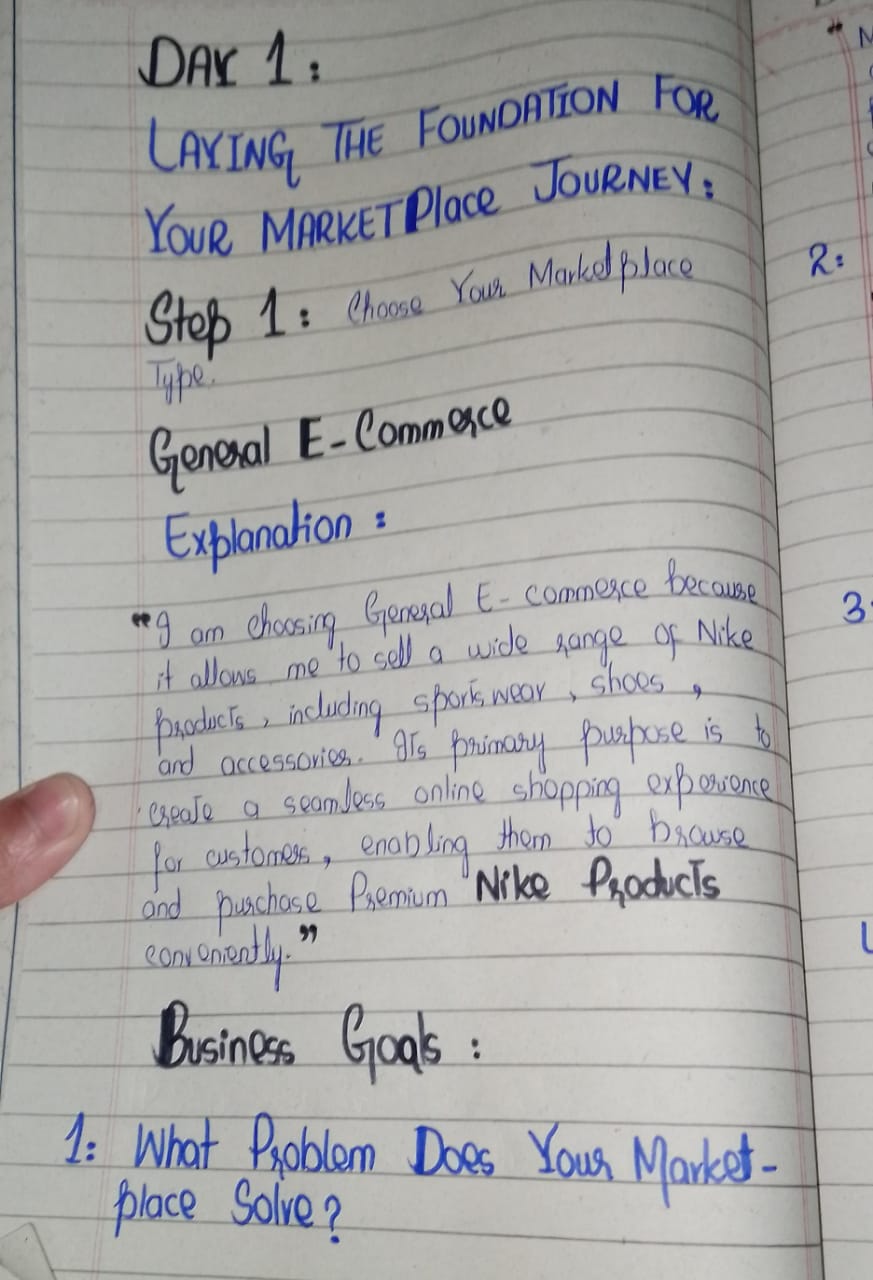 DAY 1:
LAYING THE FOUNDATION FOR
YOUR MARKETPlace JOURNEY:
Step 1: Choose Your Marketplace
Type.
General E-Commerce
Explanation:
"I am choosing General E-commerce because
it allows me to sell a wide range of Nike
products, including sportswear, shoes,
and accessories. Its primary purpose is to
create a seamless online shopping experience
for customers, enabling them to browse
and purchase Premium Nike Products
conveniently."
Business Goals:
1: What Problem Does Your Market-
place Solve?
2:
3